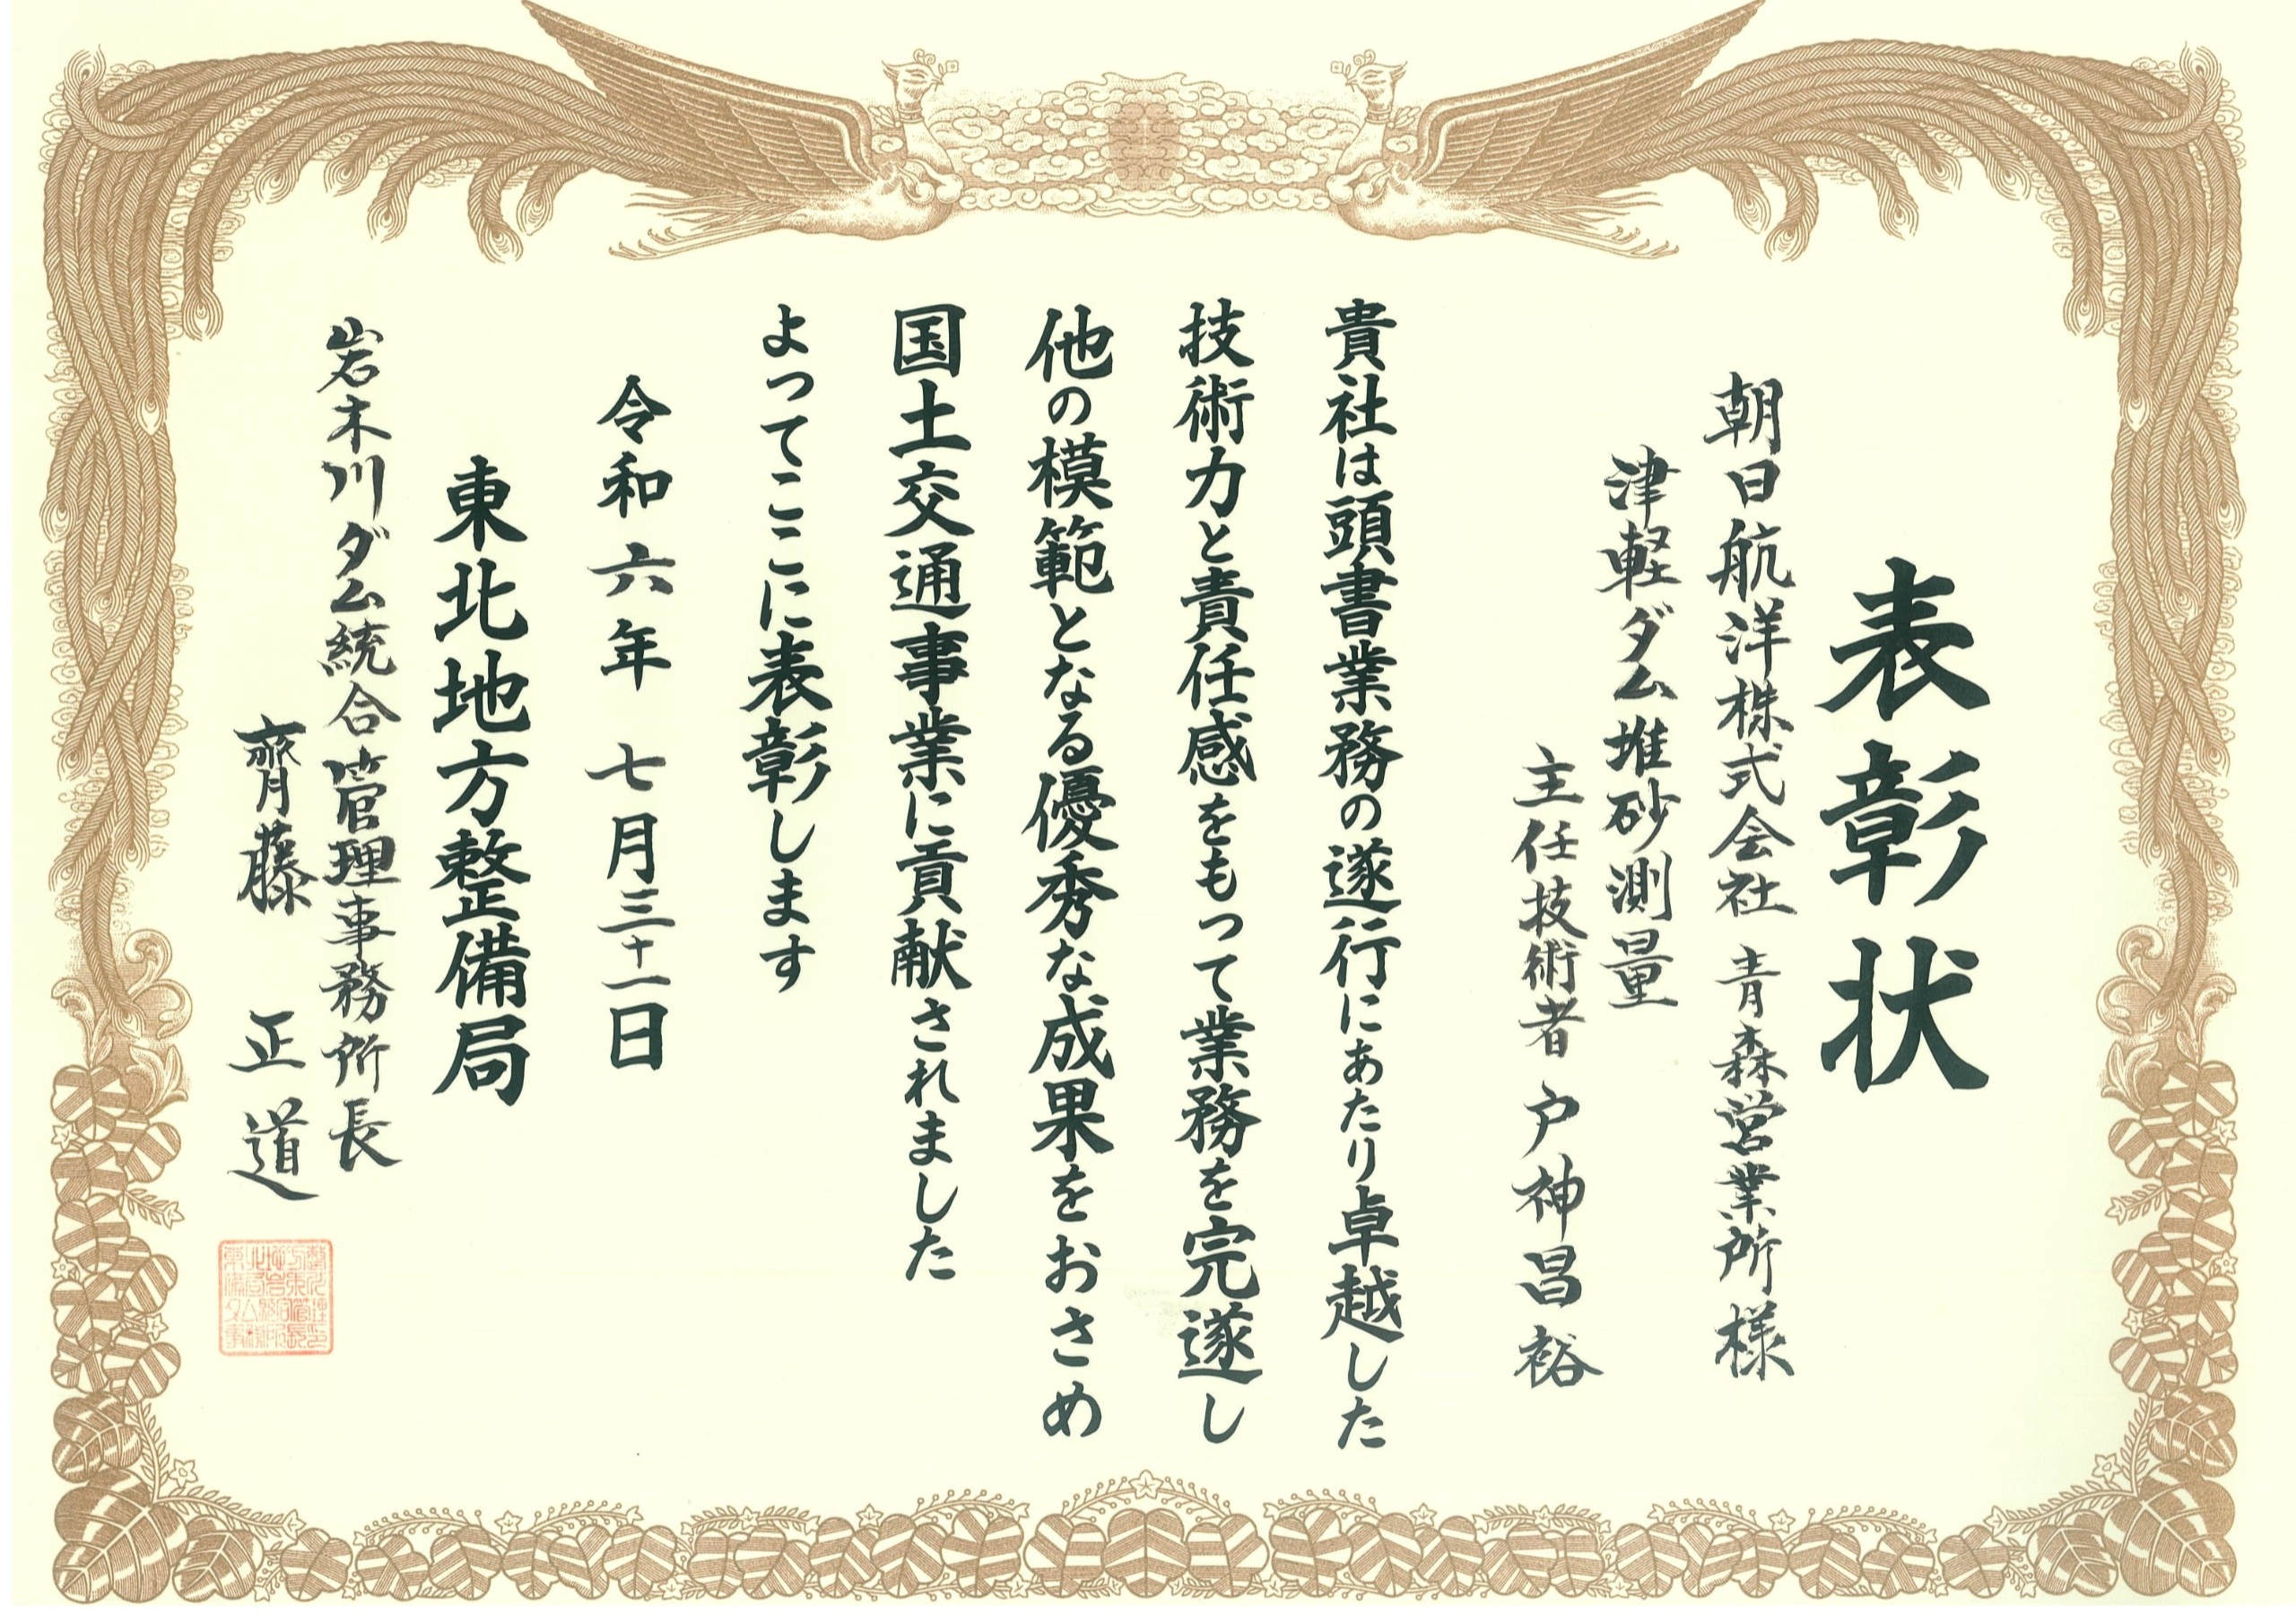 表彰状
朝日航洋株式会社 青森営業所様
津軽ダム堆砂測量
主任技術者 戸神昌裕
貴社は頭書業務の遂行にあたり卓越した
技術力と責任感をもって業務を完遂し
他の模範となる優秀な成果をおさめ
国土交通事業に貢献されました
よってここに表彰します
令和六年 七月三十一日
東北地方整備局
岩木川ダム統合管理事務所長
齊藤 正道